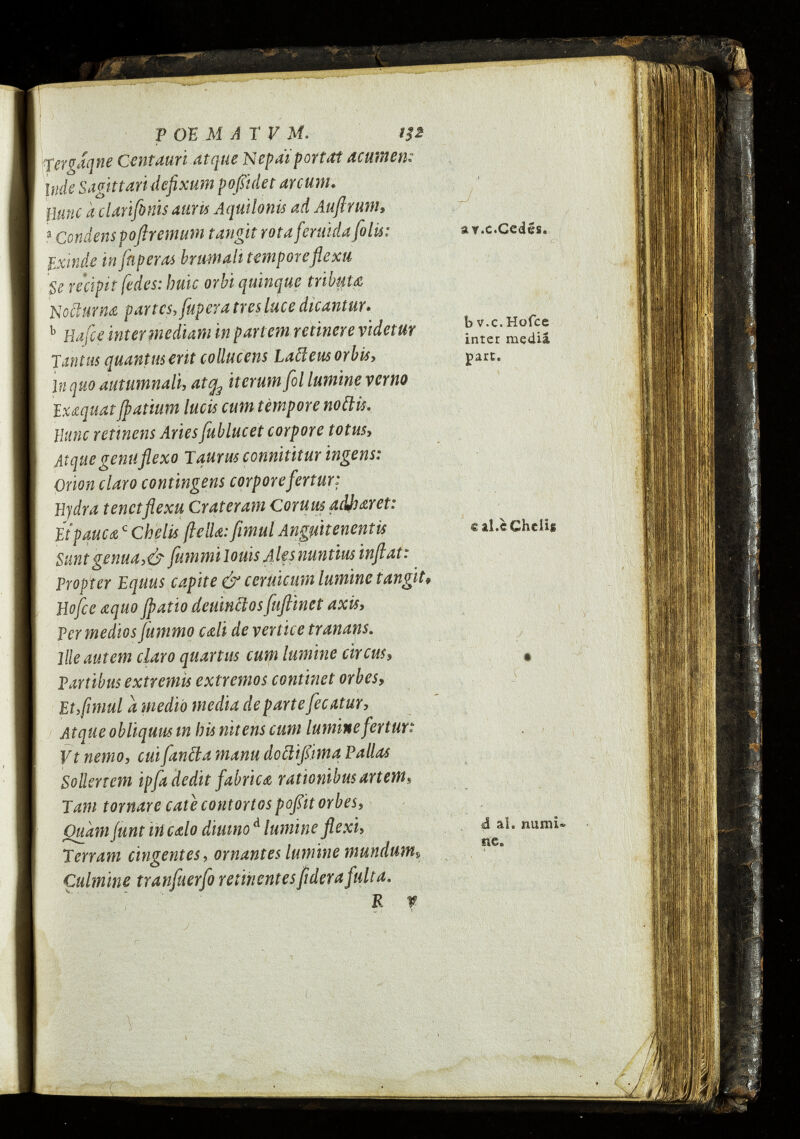 POEMATVM. 132
Tergáqne Centauri atque Nepai portat acumen:
Inde Sagittari defixum poßidet arcum.
Hunc à clarisonis auris Aquilonis ad Austrum,
a Condens postremum tangit rota feruida solis:
Exinde in superas brumali tempore flexu
Se recipit sedes: huic orbi quinque tributæ
Nocturnæ partes, supera tres luce dicantur.
b Hasce inter mediam in partem retinere videtur
Tantus quantus erit collucens Lacteus orbis,
In quo autumnali, atq; iterum sol lumine verno
Exæquat spatium lucis cum tempore noctis.
Hunc retinens Aries sublucet corpore totus,
Atque genu flexo Taurus connititur ingens:
Orion claro contingens corpore fertur:
Hydra tenet flexu Crateram Coruus adhæret:
Et paucæ c Chelis stellæ: simul Anguitenentis
Sunt genua, & summi Iouis Ales nuntius instat:
Propter Equus capite & ceruicum lumine tangit,
Hosce æquo spatio deuinctos sustinet axis,
Per medios summo cæli de vertice tranans.
Ille autem claro quartus cum lumine circus,
Partibus extremis extremos continet orbes,
Et, simul à medio media de parte secatur,
Atque obliquus in his nitens cum lumine fertur:
Vt nemo, cui sancta manu doctißima Pallas
Sollertem ipsa dedit fabricæ rationibus artem,
Tam tornare catè contortos poßit orbes,
Quàm sunt in cælo diuino d lumine flexi,
Terram cingentes, ornantes lumine mundum,
Culmine transuerso retinentes sidera fulta.
R v
a v.c. Cedés.
b v.c. Hosce
inter mediā
part.
c al. è Chelis
d al. numi-
ne.